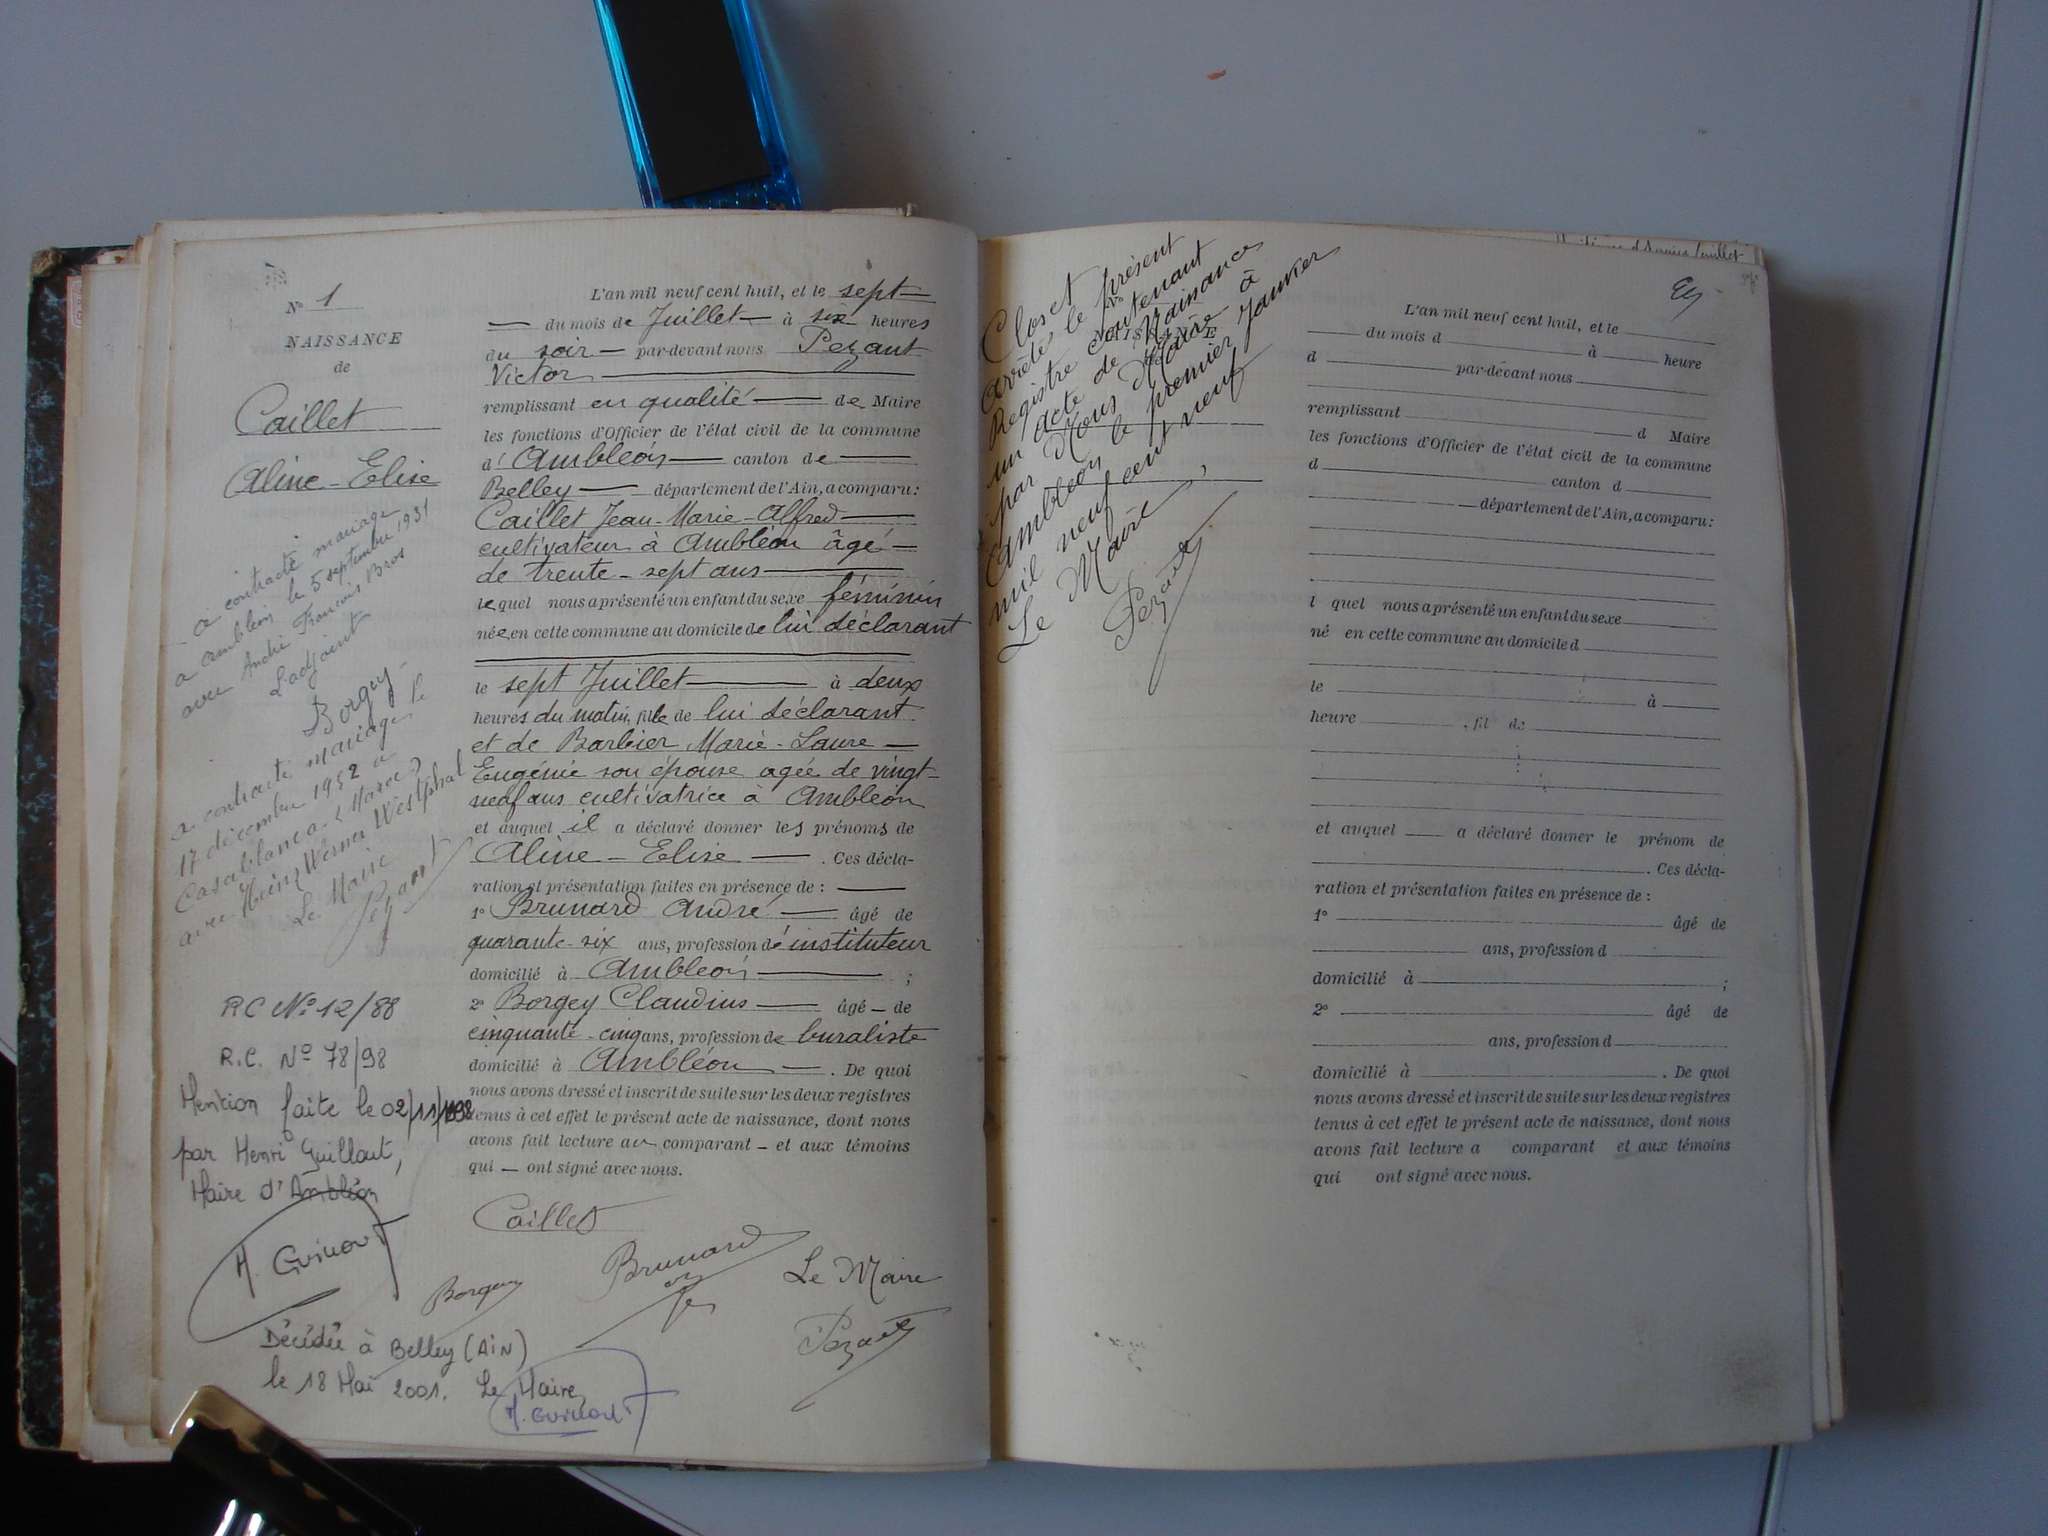 N° 1
NAISSANCE
de
Caillet
Aline-Elise
a contracté mariage
a Ambléon le 5 septembre 1931
avec André François Bros
L'adjoint
Borgey
a contracté mariage le
17 décembre 1952 a
Casablanca (Maroc)
avec Heinz Werner Westphal
Le Maire
Pezant
RC N° 12/88
R.C. N° 78/98
Mention faite le 02/11/1998
par Henri Guillaut,
Maire d'Ambléon
L'an mil neuf cent huit, et le sept
du mois de Juillet à six heures
du soir par-devant nous Pezant
Victor
remplissant en qualité de Maire
les fonctions d'Officier de l'état civil de la commune
d'Ambléon canton de
Belley département de l'Ain, a comparu:
Caillet Jean-Marie-Alfred
cultivateur à Ambléon âgé
de trente-sept ans
lequel nous a présenté un enfant du sexe féminin
née en cette commune au domicile de lui déclarant
le sept Juillet à deux
heures du matin, fille de lui déclarant
et de Barbier Marie-Laure
Eugénie son épouse agée de vingt-
neuf ans cultivatrice à Ambléon
et auquel il a déclaré donner les prénoms de
Aline-Elise. Ces décla-
ration et présentation faites en présence de :
1° Brunard André âgé de
quarante-six ans, profession d'instituteur
domicilié à Ambléon ;
2° Borgey Claudius âgé de
cinquante-cinq ans, profession de buraliste
domicilié à Ambléon. De quoi
nous avons dressé et inscrit de suite sur les deux registres
tenus à cet effet le présent acte de naissance, dont nous
avons fait lecture au comparant et aux témoins
qui ont signé avec nous.
Caillet
Borgey
Brunard
Le Maire
Pezant
Décédée à Belley (AIN)
le 18 Mai 2001. Le Maire
Clos et
arrêté le présent
Registre contenant
un acte de Naissances
par Nous Maire à
Ambléon le premier Janvier
mil neuf cent neuf
Le Maire,
Pezant
N°
NAISSANCE
L'an mil neuf cent huit, et le
du mois d à heure
d par-devant nous
remplissant
d Maire
les fonctions d'Officier de l'état civil de la commune
d canton d
département de l'Ain, a comparu:
l quel nous a présenté un enfant du sexe
né en cette commune au domicile d
le à
heure , fil de
et auquel a déclaré donner le prénom de
. Ces décla-
ration et présentation faites en présence de :
1° âgé de
ans, profession d
domicilié à ;
2° âgé de
ans, profession d
domicilié à . De quoi
nous avons dressé et inscrit de suite sur les deux registres
tenus à cet effet le présent acte de naissance, dont nous
avons fait lecture a comparant et aux témoins
qui ont signé avec nous.